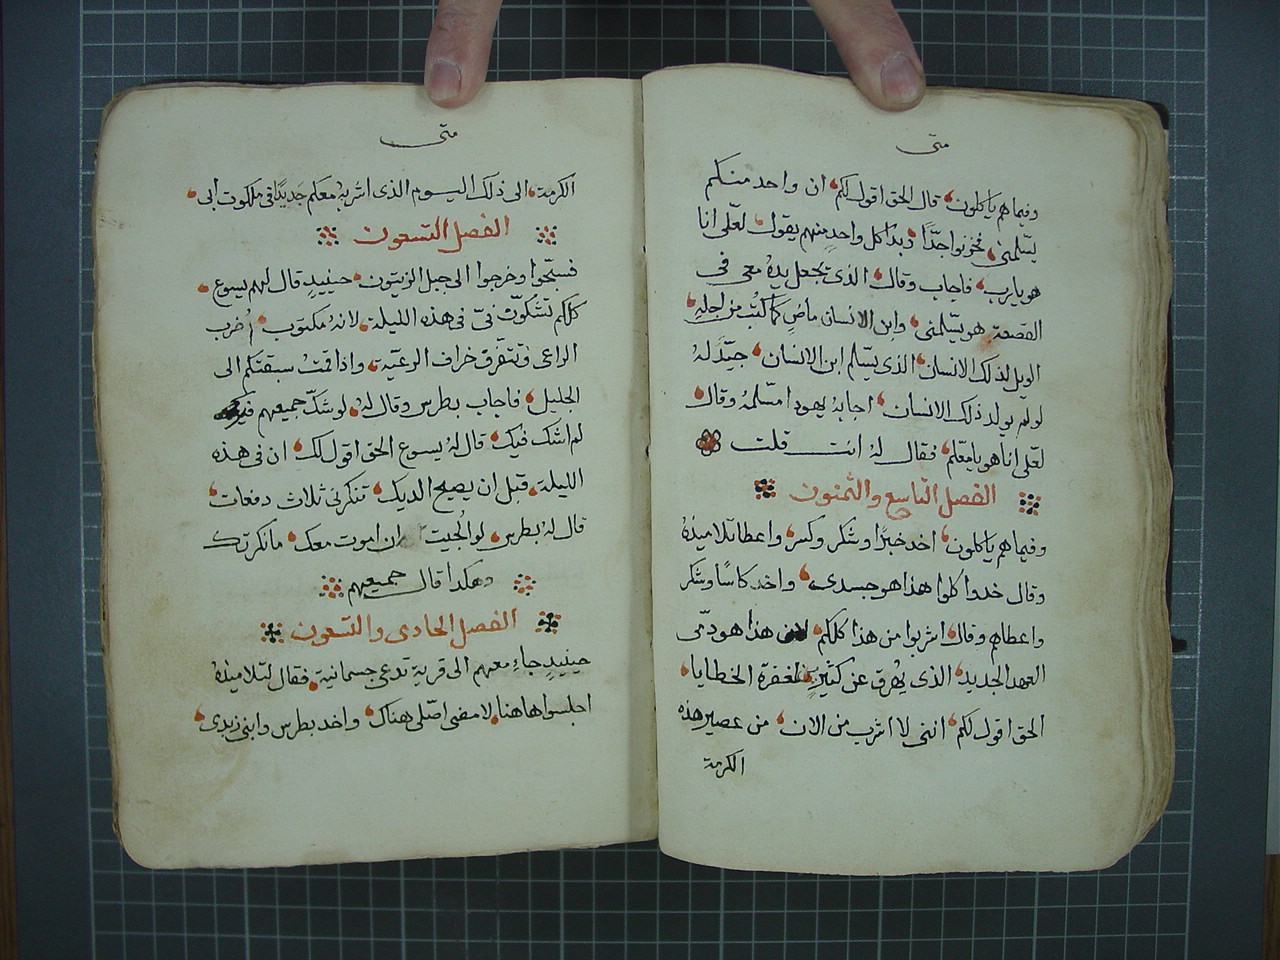 متى
وفيما هم ياكلون، قال الحق اقول لكم، ان واحد منكم
يسّلمني، فحزنوا جدًّا، وبدا كل واحدٍ منهم يقول، لعّلى انا
هو يارب، فاجاب وقال، الذى يجعل يدهُ معى فى
القصعة هو يسّلمنى، وابن الانسان ماضٍ كما كُتب من اجلهِ،
الويل لذلك الانسان، الذى يسّلم ابن الانسان، جيّد لهُ
لو لم يولد ذلك الانسان، اجابهُ يهودا مسّلمهُ وقال،
لعّلى انا هو يا معّلم، فقال لهُ انت قلت
الفصل التاسع والثمنون
وفيما هم ياكلون، اخد خبزًا وشكر وكسر، واعطا تلاميذهُ
وقال خدوا كلوا هذا هو جسدى، واخد كاسًا وشكر
واعطاهم وقال، اشربوا من هذا كلكم، هذا هو دمّى
العهد الجديد، الذى يُهرق عن كثيرٍين لمغفرة الخطايا،
الحق اقول لكم، اننى لا اشرب من الان، من عصير هذه
الكرمة
متى
الكرمة، الى ذلك اليوم الذى اشربهُ معكم جديدًا فى ملكوت ابى،
الفصل التسعون
فسبّحوا وخرجوا الى جبل الزيتون، حينيدٍ قال لهم يسوع،
كلكم تشكوّن فىّ فى هذه الليلة، لانهُ مكتوب، اُضرب
الراعى فتتفّرق خراف الرعّية، واذا قمتُ سبقتكم الى
الجليل، فاجاب بطرس وقال لهُ، لو شكّ جميعهم فيك
لم اشك فيك، قال لهُ يسوع الحق اقول لك، ان فى هذه
الليلة، قبل ان يصيح الديك، تنكرنى ثلاث دفعات،
قال لهُ بطرس، لو الجيت ان اموت معك، ما نكرتك
وهكدا قال جميعهم
الفصل الحادى والتسعون
حينيدٍ جاء معهم الى قرية تدعى جسمانية، فقال لتلاميذهُ
اجلسوا هاهنا، لامضى اصّلى هناك، واخد بطرس وابنى زبدى،